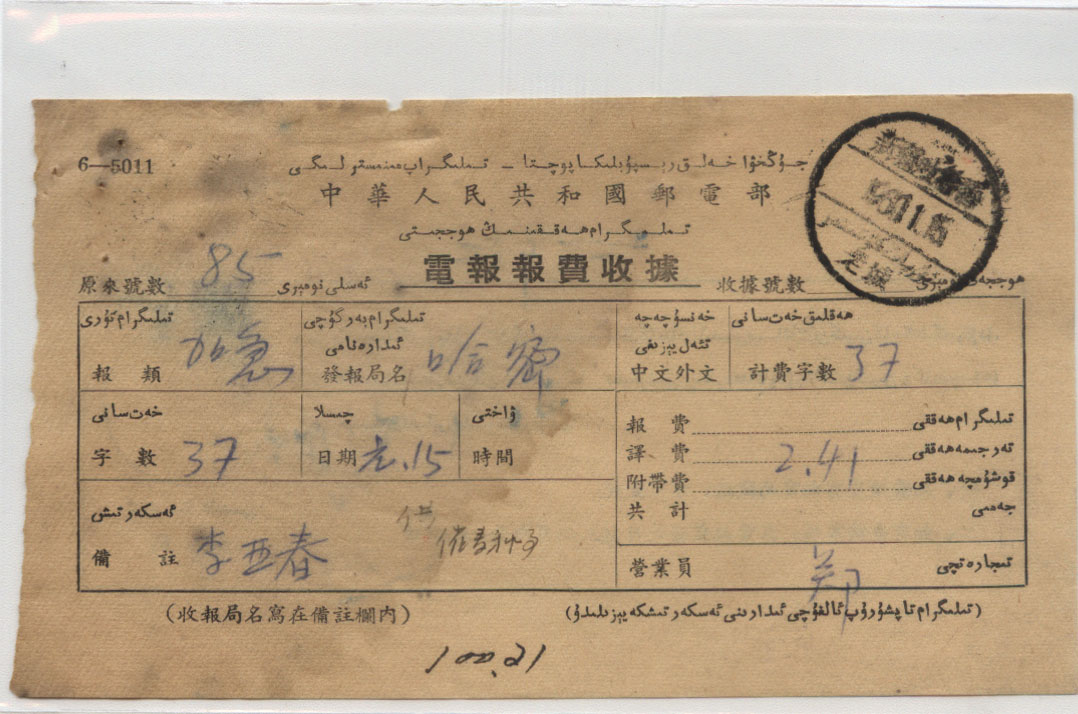 6—5011
جۇڭخۇا خەلق رېسپۇبلىكا پوچتا - تېلېگراپ مىنىستىرلىگى
中華人民共和國郵電部
تېلېگرام ھەققىنىڭ ھوججىتى
電報報費收據
原來號數 85 ئەسلى نومېرى 收據號數
تېلېگرام تۈرى
報類 加急
تېلېگرام بەرگۈچى
ئىدارە نامى
發報局名 哈密
خەنسۇچە چە
تئەل يېزىغى
中文外文
ھەقلىق خەت سانى
計費字數 37
خەت سانى
字數 37
چىسلا
日期 元.15
ۋاختى
時間
報費 تېلېگرام ھەققى
譯費 2.41 تەرجىمە ھەققى
附帶費 قوشۇمچە ھەققى
共計 جەمى
ئەسكەرتىش
備註 李亚春
營業員 郑 تىجارەتچى
(收報局名寫在備註欄內)
(تېلېگرام تاپشۇرۇپ ئالغۇچى ئىدارىنى ئەسكەرتىشكە يېزىلىدۇ)
100.21